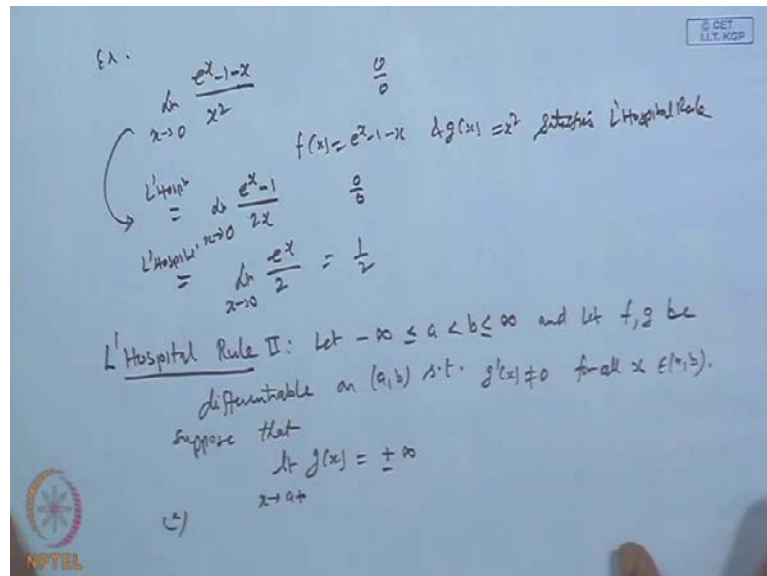 © CET
I.I.T. KGP
Ex.
lim x→0 (e^x-1-x)/x^2   0/0
f(x) = e^x-1-x & g(x) = x^2 satisfies L'Hospital Rule
L'Hospi = lim x→0 (e^x-1)/2x   0/0
L'Hospital = lim x→0 e^x/2 = 1/2
L'Hospital Rule II: Let -∞ ≤ a < b ≤ ∞ and let f, g be
differentiable on (a,b) s.t. g'(x) ≠ 0 for all x ∈ (a,b).
Suppose that
lt x→a+ g(x) = ± ∞
NPTEL